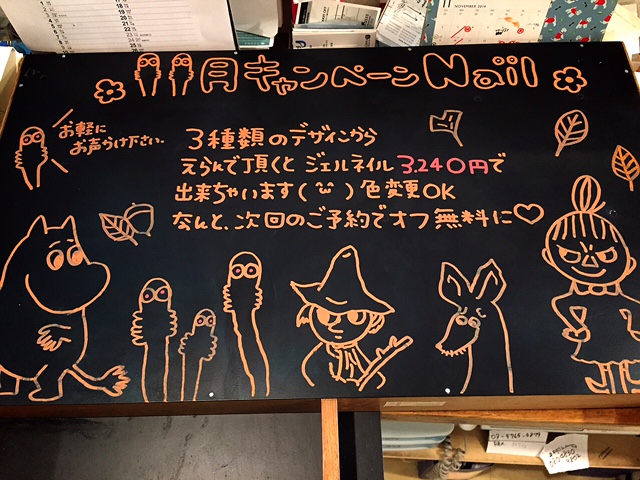 NOVEMBER 2014
11月キャンペーンNail
お軽に
お声かけ下さい.
3種類のデザインから
えらんで頂くと ジェルネイル 3.240円で
出来ちゃいます(¨ω) 色変更OK
なんと、次回のご予約でオフ無料に♡